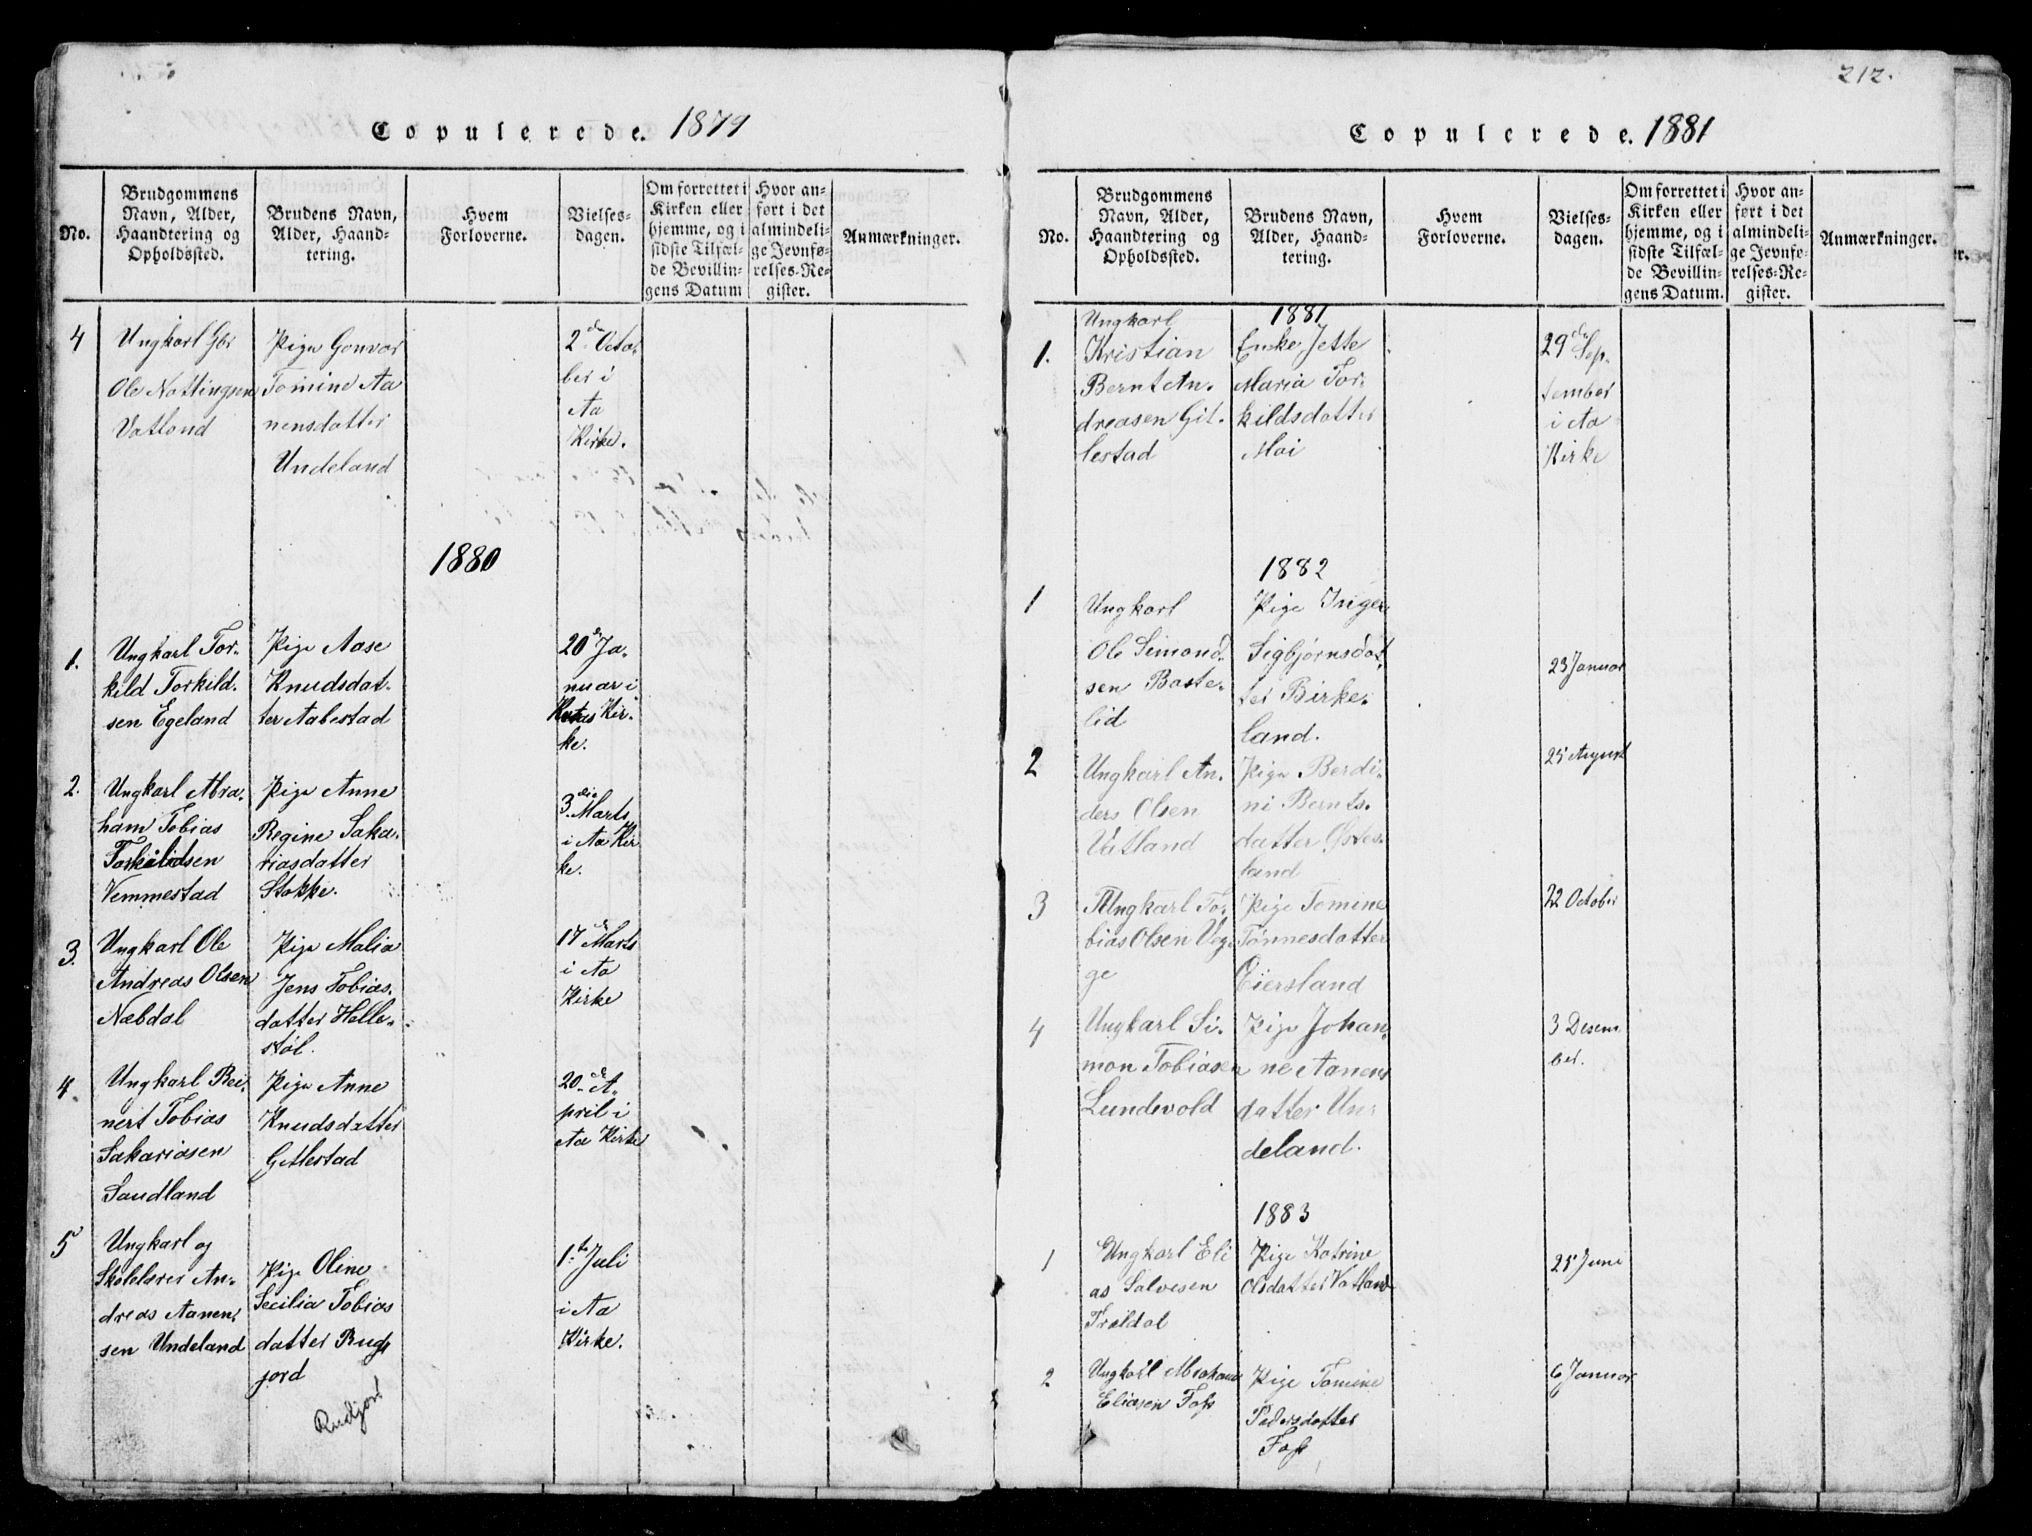 Copulerede. 1879
No.
Brudgommens Navn, Alder, Haandtering og Opholdssted.
Brudens Navn, Alder, Haandtering.
Hvem Forloverne.
Vielsesdagen.
Om forrettet i Kirken eller hjemme, og i sidste Tilfælde Bevillingens Datum
Hvor anført i det almindelige Jevnførelses-Register.
Anmærkninger.
4
Ungkarl Gbr
Ole Nottingsen
Vatland
Pige Gonvor
Tomine Aa
nensdatter
Undeland
2 den Octo-
ber i
Aa
Kirke.
1880
1.
Ungkarl Tor-
kild Torkild-
sen Egeland
Pige Aase
Knudsdat-
ter Aabestad
20 de Ja-
nuar i
Kir-
ke.
2.
Ungkarl Abra-
ham Tobias
Torkildsen
Vemmestad
Pige Anne
Regine Saka-
riasdatter
Stokke.
3. die Marts
i Aa Kir
ke.
3.
Ungkarl Ole
Andreas Olsen
Næbdal
Pige Malia
Jens Tobias-
datter Helle-
støl.
17 de Marts
i Aa
Kirke
4.
Ungkarl Rei-
nert Tobias
Sakariasen
Sandland
Pige Anne
Knudsdatter
Gitlestad
20 de A-
pril i
Aa Kirke
5
Ungkarl og
Skolelærer An-
dreas Aanen-
sen Undeland
Pige Oline
Secilia Tobias
datter Rug-
jord
Rudjord
1. te Juli
i Aa
Kirke.
212.
Copulerede. 1881
No.
Brudgommens Navn, Alder, Haandtering og Opholdssted.
Brudens Navn, Alder, Haandtering.
Hvem Forloverne.
Vielsesdagen.
Om forrettet i Kirken eller hjemme, og i sidste Tilfælde Bevillingens Datum.
Hvor anført i det almindelige Jevnførelses-Register.
Anmærkninger.
1881
1.
Ungkarl
Kristian
Bernt An-
dreasen Git-
lestad
Enke Jette
Maria Tor-
kildsdatter
Moi
29 de Sep-
tember
i Aa
Kirke
1882
1
Ungkarl
Ole Simond-
sen Baste-
lid
Pige Inger
Sigbjørnsdat-
ter Birke-
land.
23 Januar
2
Ungkarl An-
ders Olsen
Vatland
Pige Berdi-
ni Bernts-
datter Østes-
land
25 August
3
Ungkarl To-
bias Olsen Veg-
ge
Pige Tomine
Tønnesdatter
Eiersland
22 October
4
Ungkarl Si-
mon Tobiasen
Lundevold
Pige Johan-
ne Aanens
datter Un-
deland.
3 Desem-
ber.
1883
1
Ungkarl Eli
as Salvesen
Trældal
Pige Katrine
Olsdatter Vatland
25 Juni
2
Ungkarl Abraham
Eliasen Foss
Pige Tomine
Pedersdatter
Foss
6 Januar